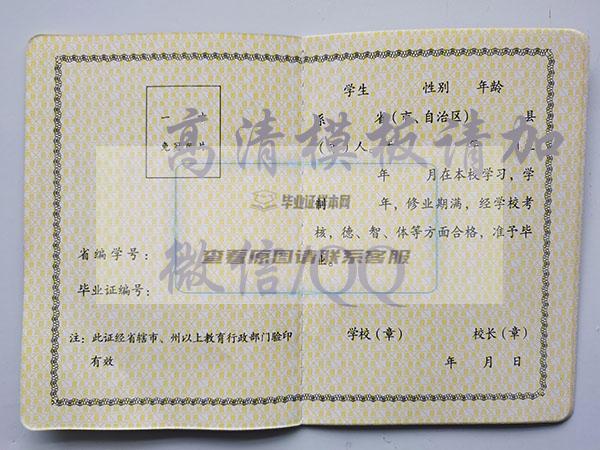 一寸
免冠照片
省编学号：
毕业证编号：
注：此证经省辖市、州以上教育行政部门验印
有效
学生 性别 年龄
系 省（市、自治区） 县
年 月在本校学习，学
制 年，修业期满，经学校考
核，德、智、体等方面合格，准予毕
业。
学校（章） 校长（章）
年 月 日
高清模板请加
微信/QQ
毕业证样本网
查看原图请联系客服